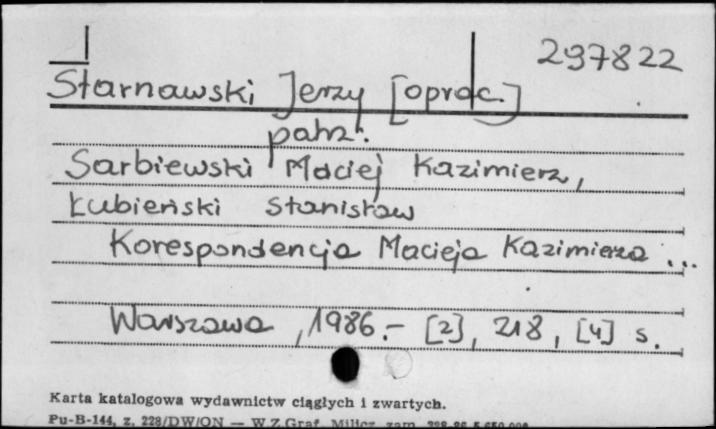 297822
Starnawski Jerzy [oprac.]
patrz.
Sarbiewski Maciej Kazimierz,
Łubieński Stanisław
Korespondencja Macieja Kazimierza ...
Warszawa, 1986.- [2], 218, [4] s.
Karta katalogowa wydawnictw ciągłych i zwartych.
Pu-B-144, z. 228/DW/ON — W.Z.Graf. Milicz zam.